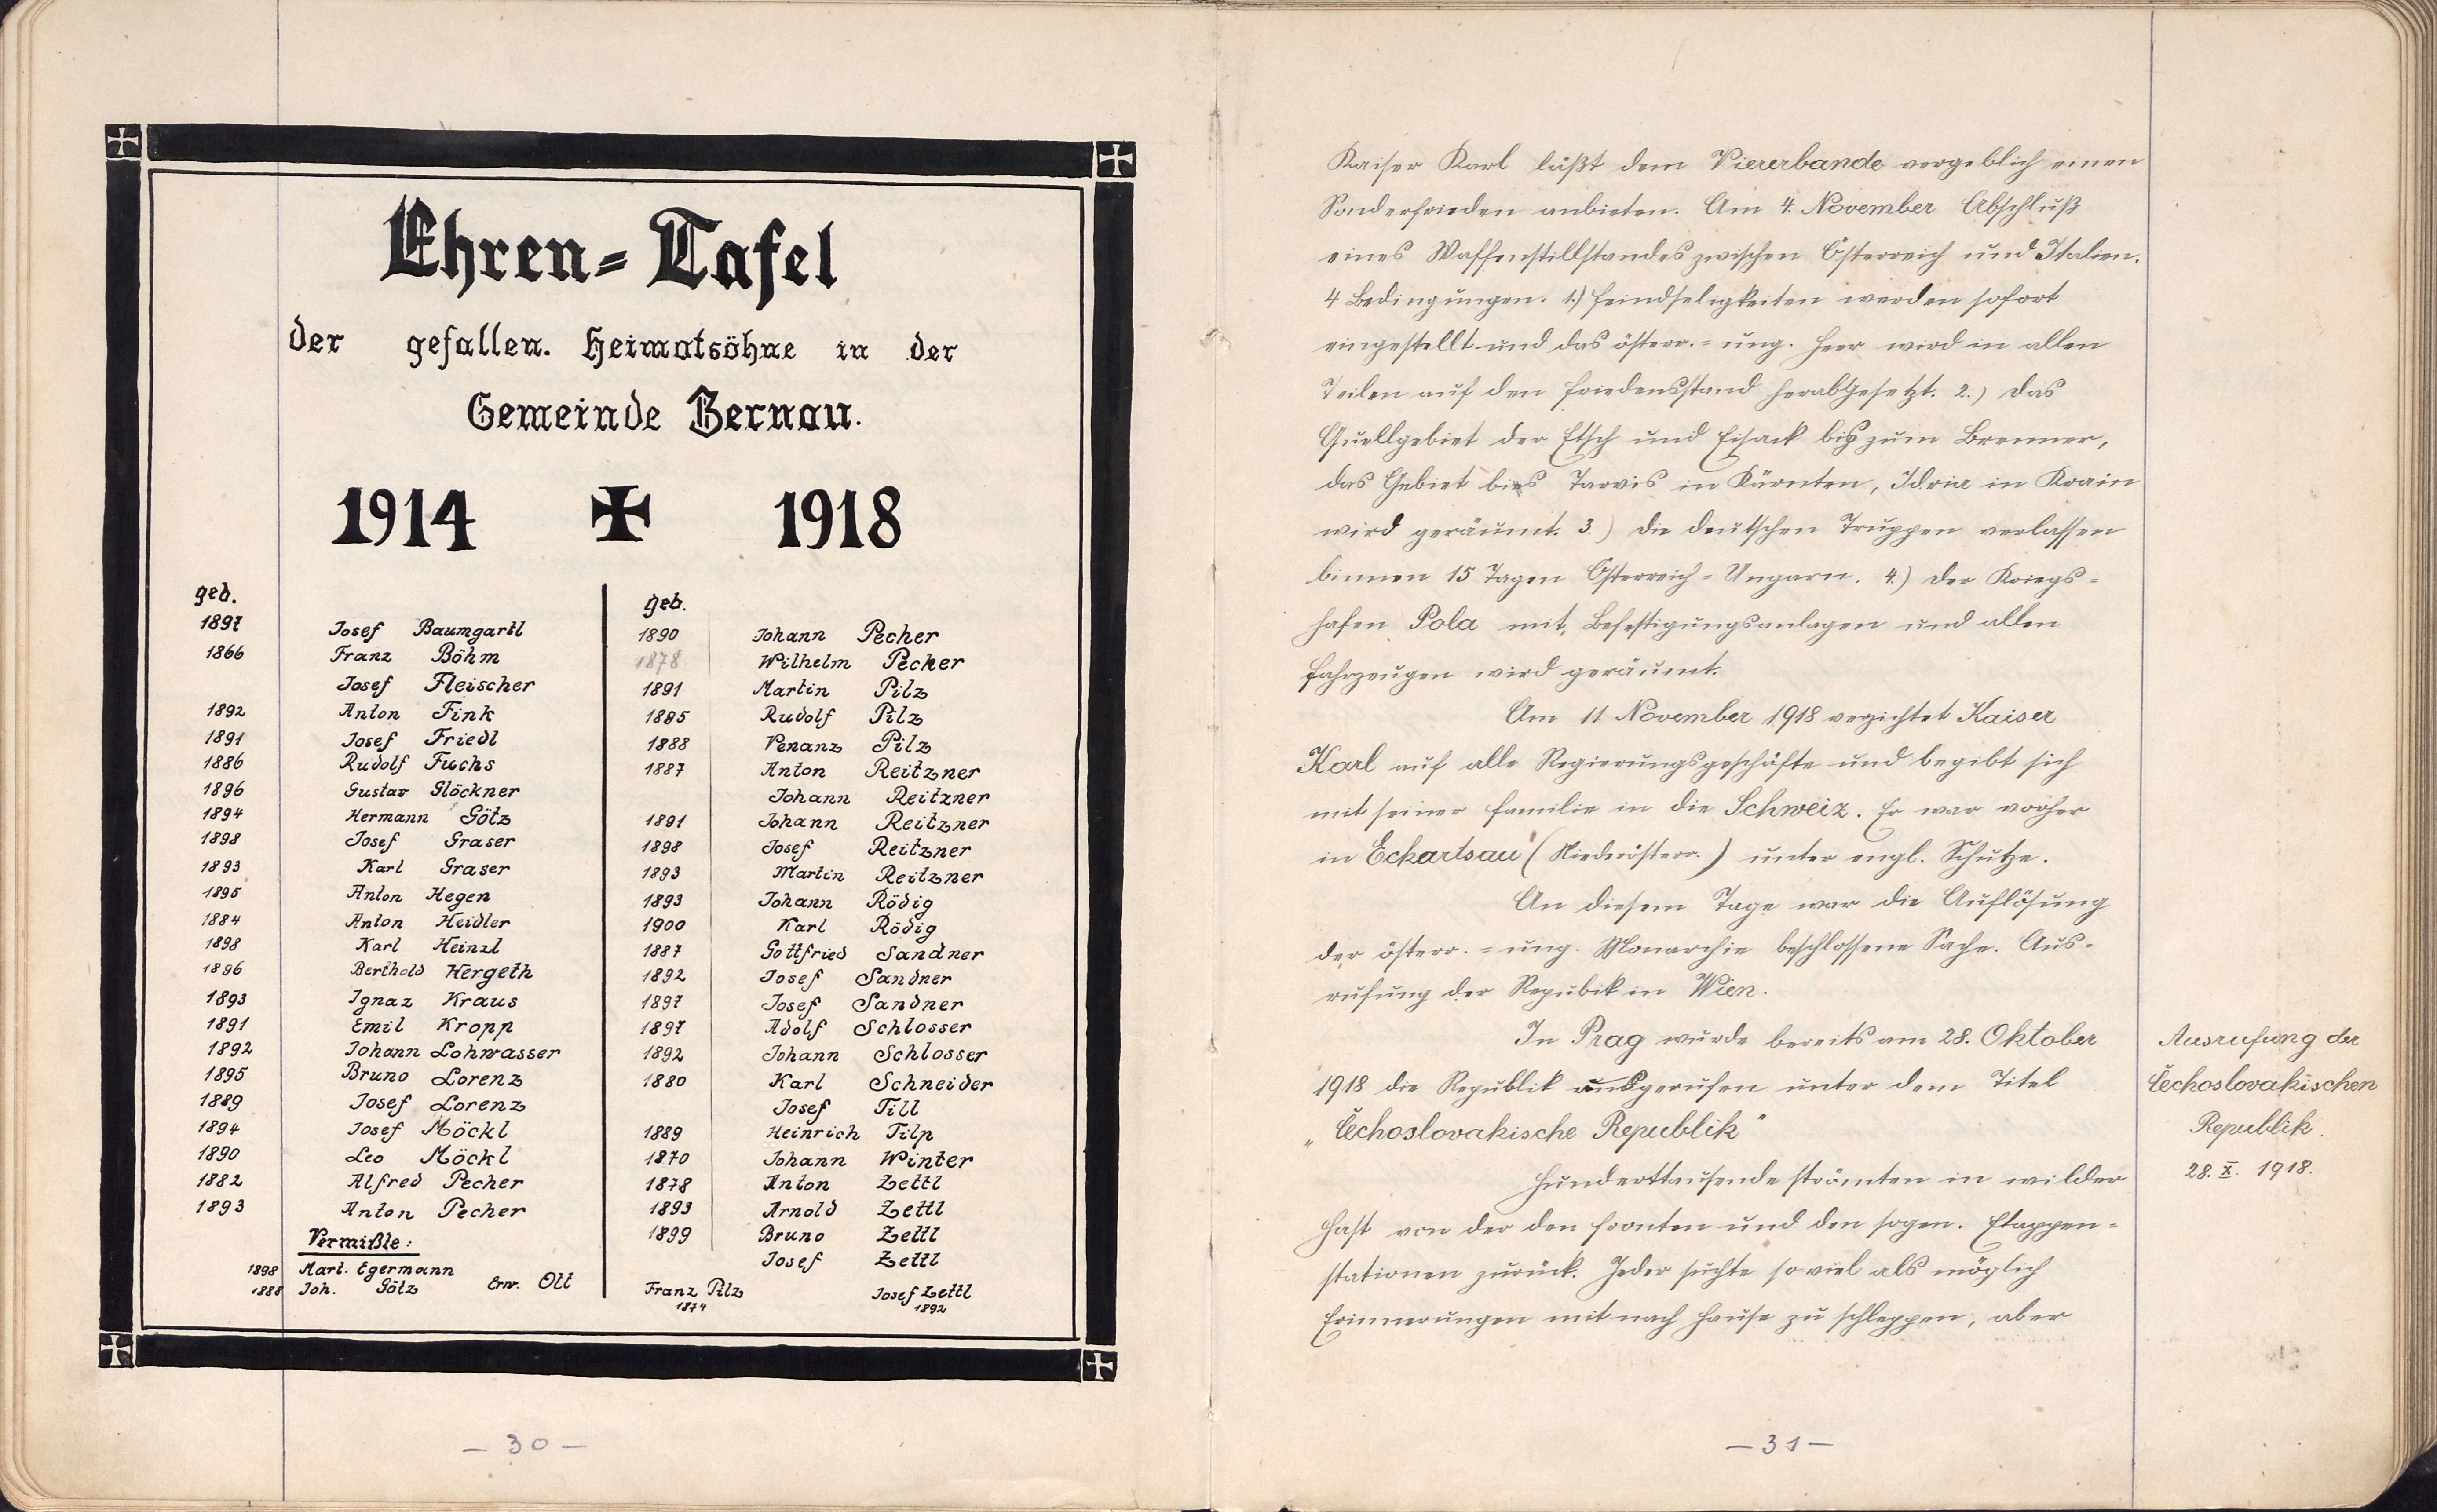 Ehren-Tafel
der gefallen. Heimatsöhne in der
Gemeinde Bernau.
1914 ✠ 1918
geb.
1897 Josef Baumgartl
1866 Franz Böhm
Josef Fleischer
1892 Anton Fink
1891 Josef Friedl
1886 Rudolf Fuchs
1896 Gustav Glöckner
1894 Hermann Götz
1898 Josef Graser
1893 Karl Graser
1895 Anton Hegen
1884 Anton Heidler
1898 Karl Heinzl
1896 Berthold Hergeth
1893 Ignaz Kraus
1891 Emil Kropp
1892 Johann Lohwasser
1895 Bruno Lorenz
1889 Josef Lorenz
1894 Josef Möckl
1890 Leo Möckl
1882 Alfred Pecher
1893 Anton Pecher
Vermißte:
1898 Mart. Egermann
1888 Joh. Götz Erw. Ott
geb.
1890 Johann Pecher
1878 Wilhelm Pecher
1891 Martin Pilz
1895 Rudolf Pilz
1888 Venanz Pilz
1887 Anton Reitzner
Johann Reitzner
1891 Johann Reitzner
1898 Josef Reitzner
1893 Martin Reitzner
1893 Johann Rödig
1900 Karl Rödig
1887 Gottfried Sandner
1892 Josef Sandner
1897 Josef Sandner
1897 Adolf Schlosser
1892 Johann Schlosser
1880 Karl Schneider
Josef Till
1889 Heinrich Tilp
1870 Johann Winter
1878 Anton Zettl
1893 Arnold Zettl
1899 Bruno Zettl
Josef Zettl
Franz Pilz Josef Zettl
1874 1892
– 30 –
Kaiser Karl läßt dem Viererbande vergeblich einen
Sonderfrieden anbieten. Am 4. November Abschluß
eines Waffenstillstandes zwischen Österreich und Italien.
4 Bedingungen. 1.) Feindseligkeiten werden sofort
eingestellt und das österr.-ung. Heer wird in allen
Teilen auf den Friedensstand herabgesetzt. 2.) Das
Quellgebiet der Etsch und Eisack bis zum Brenner,
das Gebiet bis Tarvis in Kärnten, Idria in Krain
wird geräumt. 3.) Die deutschen Truppen verlassen
binnen 15 Tagen Österreich-Ungarn. 4.) Der Kriegs-
hafen Pola mit Befestigungsanlagen und allen
Fahrzeugen wird geräumt.
Am 11 November 1918 verzichtet Kaiser
Karl auf alle Regierungsgeschäfte und begibt sich
mit seiner Familie in die Schweiz. Er war vorher
in Eckartsau (Niederösterr.) unter engl. Schutze.
An diesem Tage war die Auflösung
der österr.-ung. Monarchie beschlossene Sache. Aus-
rufung der Repubik in Wien.
In Prag wurde bereits am 28. Oktober
1918 die Republik ausgerufen unter dem Titel
„Čechoslovakische Republik"
Hunderttausende strömten in wilder
Hast von der den Fronten und den sogen. Etappen-
stationen zurück. Jeder suchte so viel als möglich
Erinnerungen mit nach Hause zu schleppen, aber
Ausrufung der
Čechoslovakischen
Republik.
28. X. 1918.
– 31 –